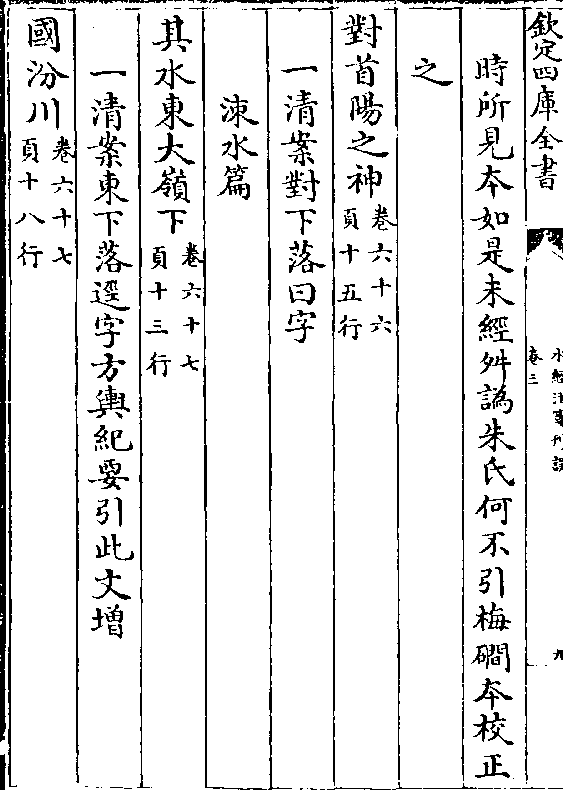 欽定四庫全書
水經注箋刊誤
卷三
九
時所見本如是未經舛譌朱氏何不引梅磵本校正
之
對首陽之神卷六十六
頁十五行
一清案對下落曰字
涑水篇
其水東大嶺下卷六十七
頁十三行
一清案東下落逕字方輿紀要引此文增
國汾川卷六十七
頁十八行